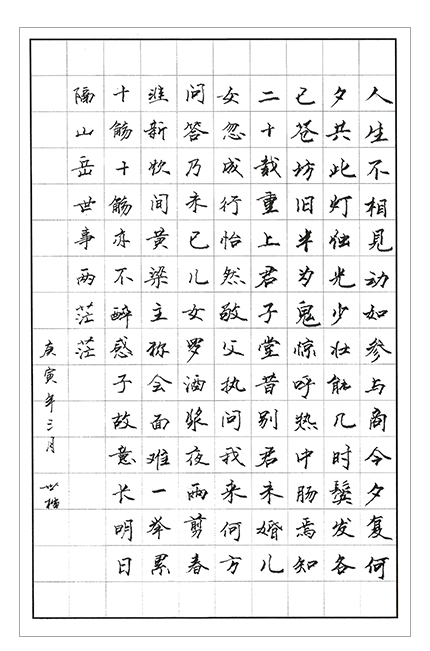 人生不相见动如参与商今夕复何
夕共此灯烛光少壮能几时鬓发各
已苍访旧半为鬼惊呼热中肠焉知
二十载重上君子堂昔别君未婚儿
女忽成行怡然敬父执问我来何方
问答乃未已儿女罗酒浆夜雨剪春
韭新炊间黄粱主称会面难一举累
十觞十觞亦不醉感子故意长明日
隔山岳世事两茫茫
庚寅年三月